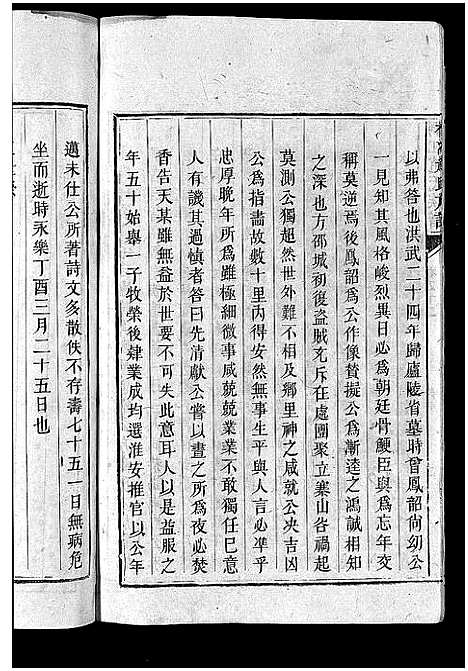 以弗答也洪武二十四年歸廬陵省墓時曾鳳韶尚幼公
見其風格峻烈異日必為朝廷骨鯁臣與為忘年交
稱莫逆焉後鳳韶為公作像贊擬公為漸逵之鴻誠相知
之深也方邵城初復盜賊充斥在處團聚立寨山谷禍起
莫測公獨超然世外難不相及鄉里神之咸就公央吉凶
公為指畫故數十里內得安然無事生平與人言必準乎
忠厚晚年所為雖極細微事咸兢兢業業不敢獨任巳意
人有譏其過慎者答曰先清獻公嘗以晝之所為夜必焚
香告天某雖無益於世要不可失此意耳人以是益服之
年五十始舉一子牧榮後肄業成均選淮安推官以公年
邁未仕公所著詩文多散佚不存壽七十五一日無病危
坐而逝時永樂丁酉三月二十五日也